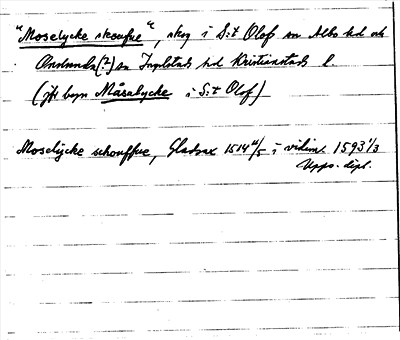 "Moselycke skouffue", skog i S:t Olof sn Albo hd och
Onslunda(?) sn Ingelstads hd Kristianstads l
(jfr byn Måsalycke i S:t Olof)
Moselÿcke schouffue, Gladsax 1514 11/5 i vidim. 1593 1/3
Upps. dipl.